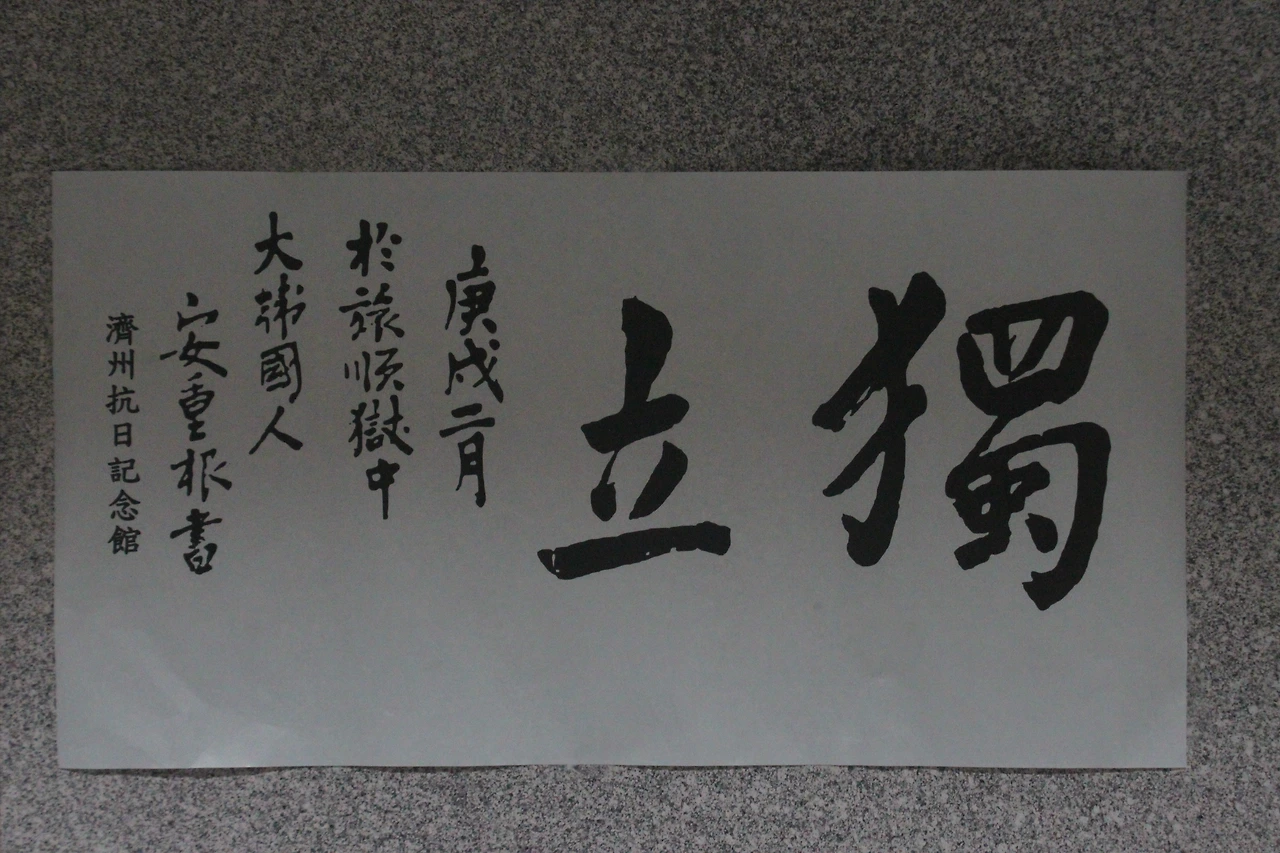 獨立
庚戌二月
於旅順獄中
大韓國人
安重根書
濟州抗日記念館